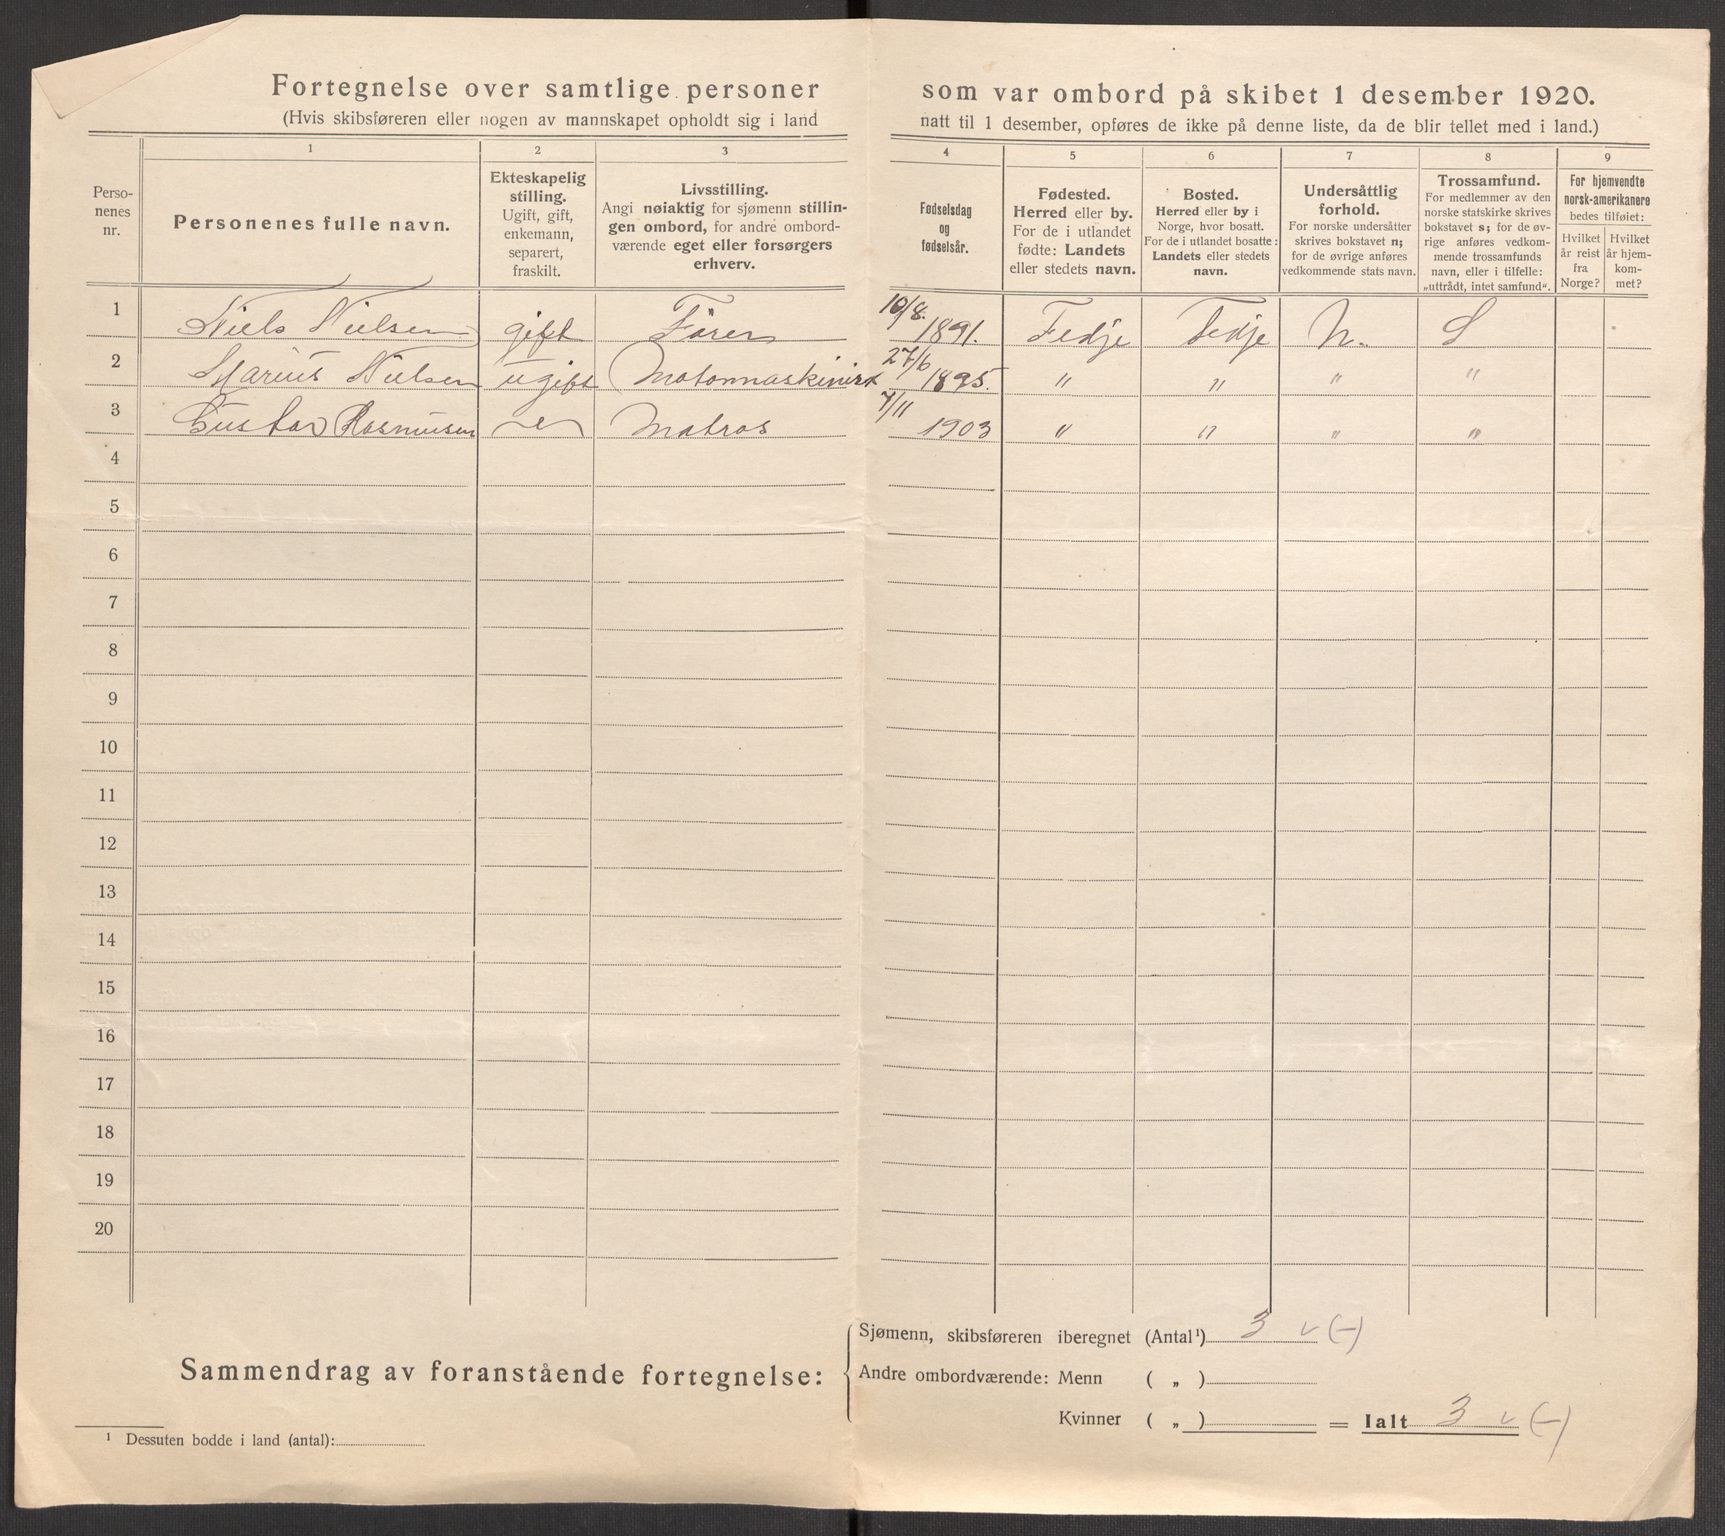 Fortegnelse over samtlige personer som var ombord på skibet 1 desember 1920.
(Hvis skibsføreren eller nogen av mannskapet opholdt sig i land natt til 1 desember, opføres de ikke på denne liste, da de blir tellet med i land.)
Personenes nr.
1
Personenes fulle navn.
2
Ekteskapelig stilling.
Ugift, gift, enkemann, separert, fraskilt.
3
Livsstilling.
Angi nøiaktig for sjømenn stillingen ombord, for andre ombordværende eget eller forsørgers erhverv.
4
Fødselsdag og fødselsår.
5
Fødested.
Herred eller by.
For de i utlandet fødte: Landets eller stedets navn.
6
Bosted.
Herred eller by i Norge, hvor bosatt.
For de i utlandet bosatte: Landets eller stedets navn.
7
Undersåttlig forhold.
For norske undersåtter skrives bokstavet n; for de øvrige anføres vedkommende stats navn.
8
Trossamfund.
For medlemmer av den norske statskirke skrives bokstavet s; for de øvrige anføres vedkommende trossamfunds navn, eller i tilfelle: „uttrådt, intet samfund".
9
For hjemvendte norsk-amerikanere bedes tilføiet:
Hvilket år reist fra Norge?
Hvilket år hjemkommet?
1 Niels Nielsen gift Förer 10/8. 1891. Fedje Fedje N. S
2 Marius Nielsen ugift Motormaskinist 27/6 1895. " " " "
3 Gustav Rasmusen 7/11 Matros 1903 " " " "
4
5
6
7
8
9
10
11
12
13
14
15
16
17
18
19
20
Sammendrag av foranstående fortegnelse:
Sjømenn, skibsføreren iberegnet (Antal¹) 3 v (-)
Andre ombordværende: Menn ( „ )
Kvinner ( „ ) = Ialt 3 v (-)
¹ Dessuten bodde i land (antal):